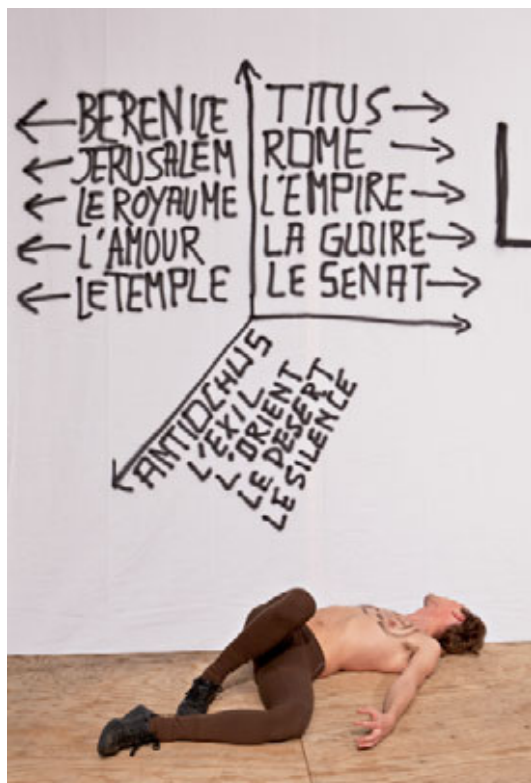 BERENICE
JERUSALEM
LE ROYAUME
L'AMOUR
LE TEMPLE
TITUS
ROME
L'EMPIRE
LA GLOIRE
LE SENAT
ANTIOCHUS
L'EXIL
L'ORIENT
LE DESERT
LE SILENCE
L